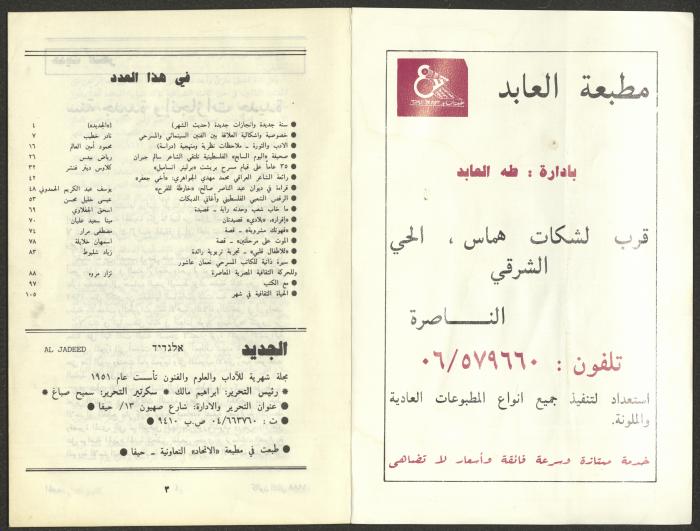 مطبعة العابد
بادارة : طه العابد
قرب لشكات هماس ، الحي
الشرقي
النـــاصرة
تلفون : ٠٦/٥٧٩٦٦٠
استعداد لتنفيذ جميع انواع المطبوعات العادية
والملونة.
خدمة ممتازة وسرعة فائقة وأسعار لا تضاهى
في هذا العدد
● سنة جديدة وانجازات جديدة (حديث الشهر) «الجديد» ٤
● خصوصية واشكالية العلاقة بين الفنين السينمائي والمسرحي نادر خطيب ٧
● الادب والثورة ـ ملاحظات نظرية ومنهجية (دراسة) محمود أمين العالم ١٦
● صحيفة «اليوم السابع» الفلسطينية تلتقي الشاعر سالم جبران رياض بيدس ٢٦
● ٣٥ عاماً على قيام مسرح بريشت «برلينر انسامبل» كلاوس ديتر فنشر ٣٢
● رائعة الشاعر العراقي محمد مهدي الجواهري: «أخي جعفر» ٤٢
● قراءة في ديوان عبد الناصر صالح: «خارطة للفرح» يوسف عبد الكريم المحمدوني ٤٨
● الرقص الشعبي الفلسطيني وأغاني الدبكات عيسى خليل محسن ٥٣
● ما خاب شعب وحدته راية ـ قصيدة اسحق الجغلاوي ٦٦
● «إقرار»، «بلادي» قصيدتان مينا سعيد عليان ٧٠
● «قهوتك مشروبة» ـ قصة مصطفى مرار ٧٤
● الموت على مرحلتين ـ قصة اسمهان خلايلة ٧٨
● «للأطفال قلبي» ـ تجربة تربوية رائدة زياد شليوط ٨٣
● سيرة ذاتية للكاتب المسرحي نعمان عاشور
وللحركة الثقافية المصرية المعاصرة نزار مروه ٨٨
● مع الكتب ٩٧
● الحياة الثقافية في شهر ١٠٥
الجديد אלג'דיד AL JADEED
مجلة شهرية للآداب والعلوم والفنون تأسست عام ١٩٥١
● رئيس التحرير: ابراهيم مالك ● سكرتير التحرير: سميح صباغ ●
● عنوان التحرير والادارة: شارع صهيون ١٣/ حيفا ●
● ت : ٠٤/٦٦٣٧٦٠ ص.ب ٩٤١٠ ●
● طبعت في مطبعة «الاتحاد» التعاونية ـ حيفا ●
٣